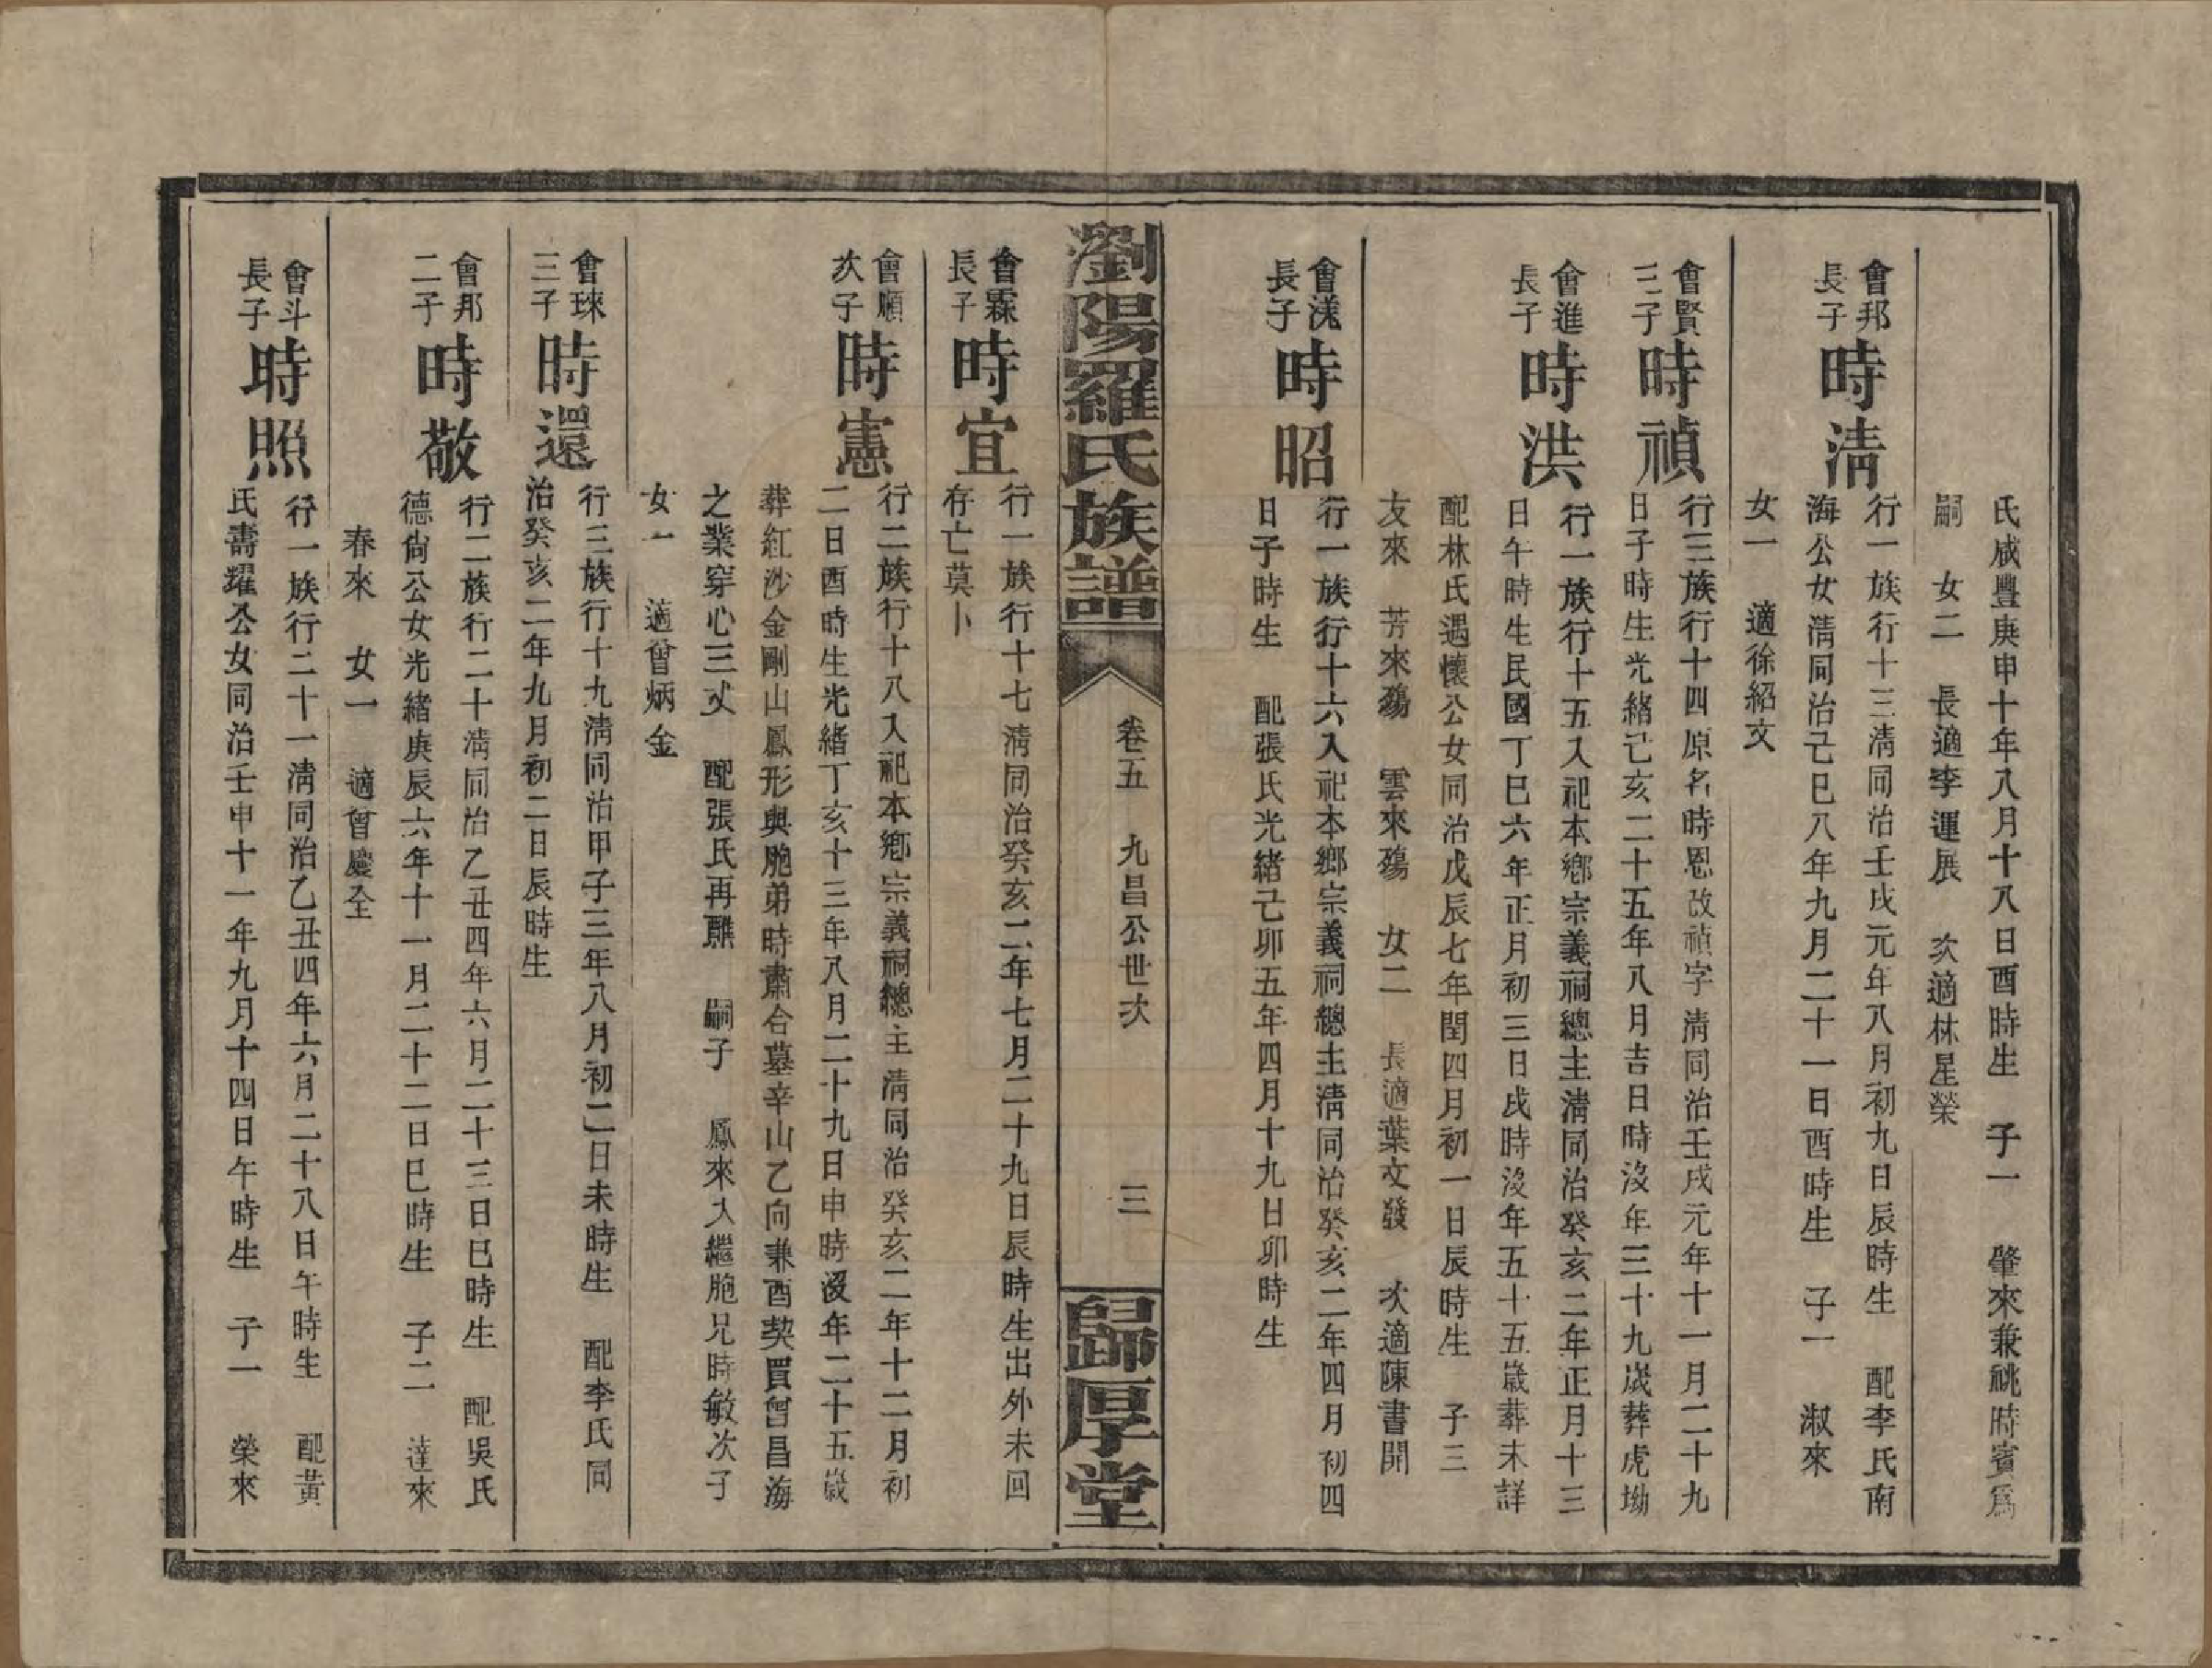 氏咸豐庚申十年八月十八日酉時生　子一　肇來兼祧時賓爲
嗣　女二　長適李運展　次適林星榮
會邦長子
時清
行一族行十三清同治壬戌元年八月初九日辰時生　配李氏南
海公女清同治己巳八年九月二十一日酉時生　子一　淑來
女一　適徐紹文
會賢三子
時禎
行三族行十四原名時恩改禎字清同治壬戌元年十一月二十九
日子時生光緒己亥二十五年八月吉日時沒年三十九歲葬虎坳
會進長子
時洪
行一族行十五入祀本鄉宗義祠總主清同治癸亥二年正月十三
日午時生民國丁巳六年正月初三日戌時沒年五十五歲葬未詳
配林氏遇懷公女同治戊辰七年閏四月初一日辰時生　子三
友來　芳來殤　雲來殤　女二　長適葉文發　次適陳書開
會渼長子
時昭
行一族行十六入祀本鄉宗義祠總主清同治癸亥二年四月初四
日子時生　配張氏光緒己卯五年四月十九日卯時生
瀏陽羅氏族譜　卷五　九昌公世次　三　歸厚堂
會霖長子
時宜
行一族行十七清同治癸亥二年七月二十九日辰時生出外未回
存亡莫卜
會順次子
時憲
行二族行十八入祀本鄉宗義祠總主清同治癸亥二年十二月初
二日酉時生光緒丁亥十三年八月二十九日申時沒年二十五歲
葬紅沙金剛山鳳形與胞弟時肅合墓辛山乙向兼酉契買曾昌海
之業穿心三丈　配張氏再醮　嗣子　鳳來入繼胞兄時敏次子
女一　適曾炳金
會琜三子
時還
行三族行十九清同治甲子三年八月初二日未時生　配李氏同
治癸亥二年九月初二日辰時生
會邦二子
時敬
行二族行二十清同治乙丑四年六月二十三日巳時生　配吳氏
德尙公女光緒庚辰六年十一月二十二日巳時生　子二　達來
春來　女一　適曾慶全
會斗長子
時照
行一族行二十一清同治乙丑四年六月二十八日午時生　配黃
氏壽耀公女同治壬申十一年九月十四日午時生　子一　榮來